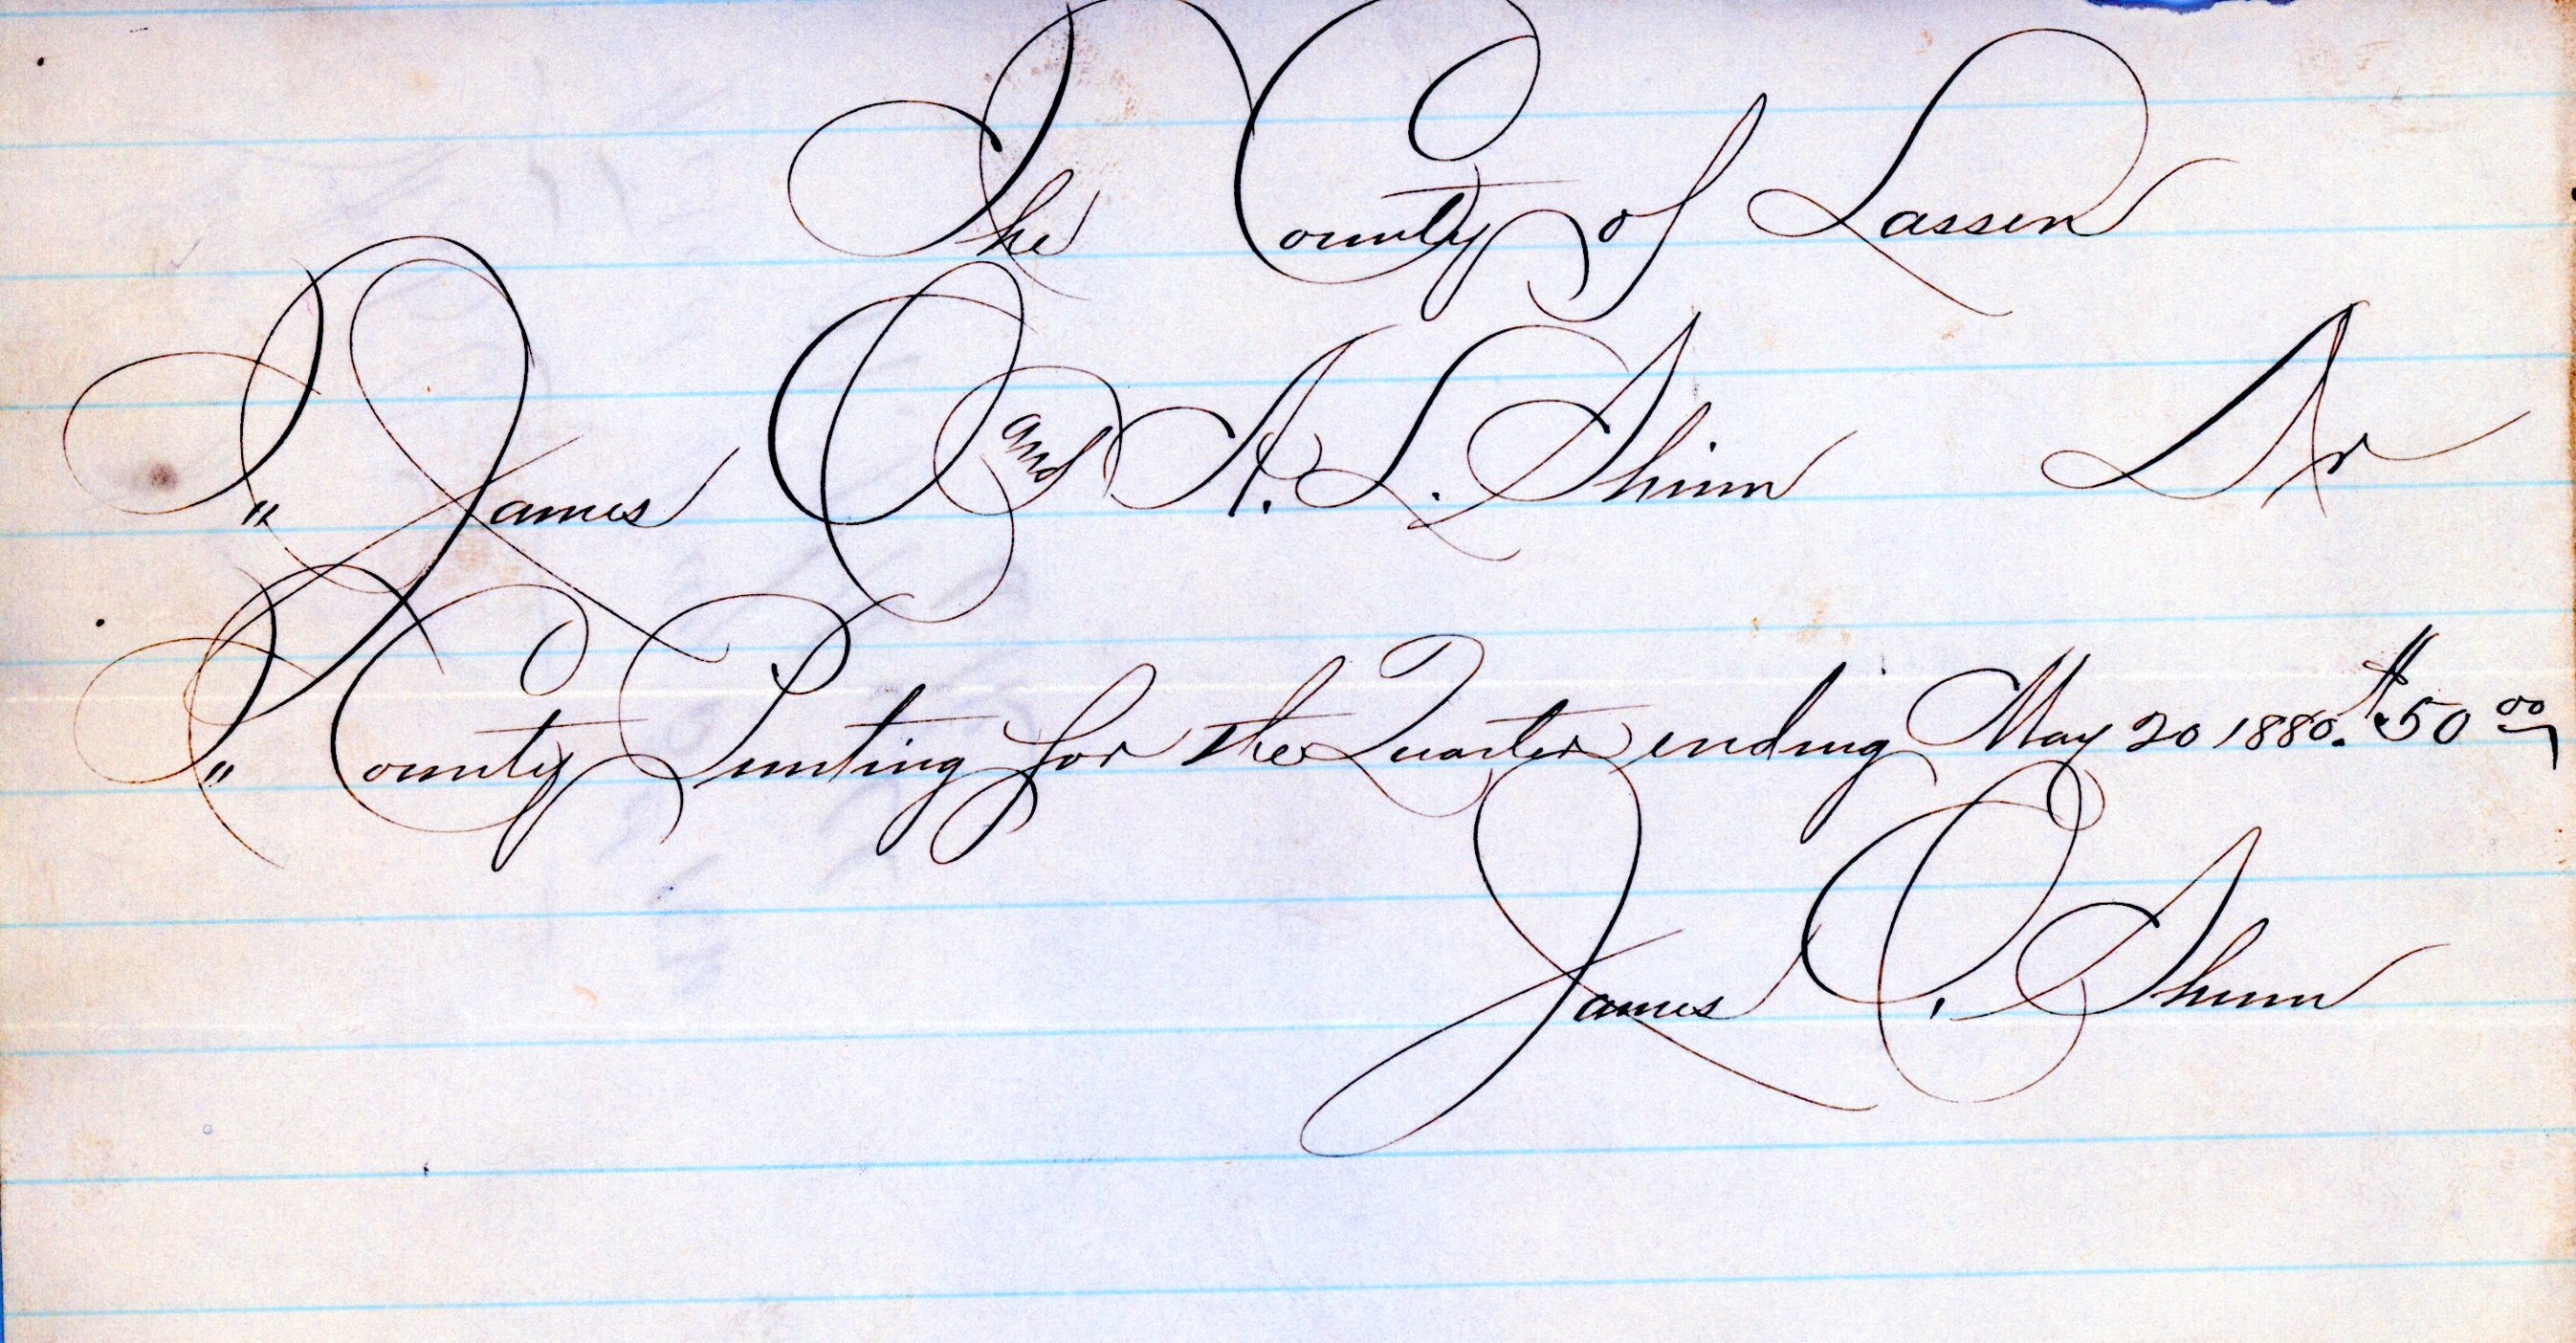 The County of Lassen
T" James O and A. L. Shinn Dr
T" County Printing for the Quarter ending May 20 1880. $50 00
James O. Shinn